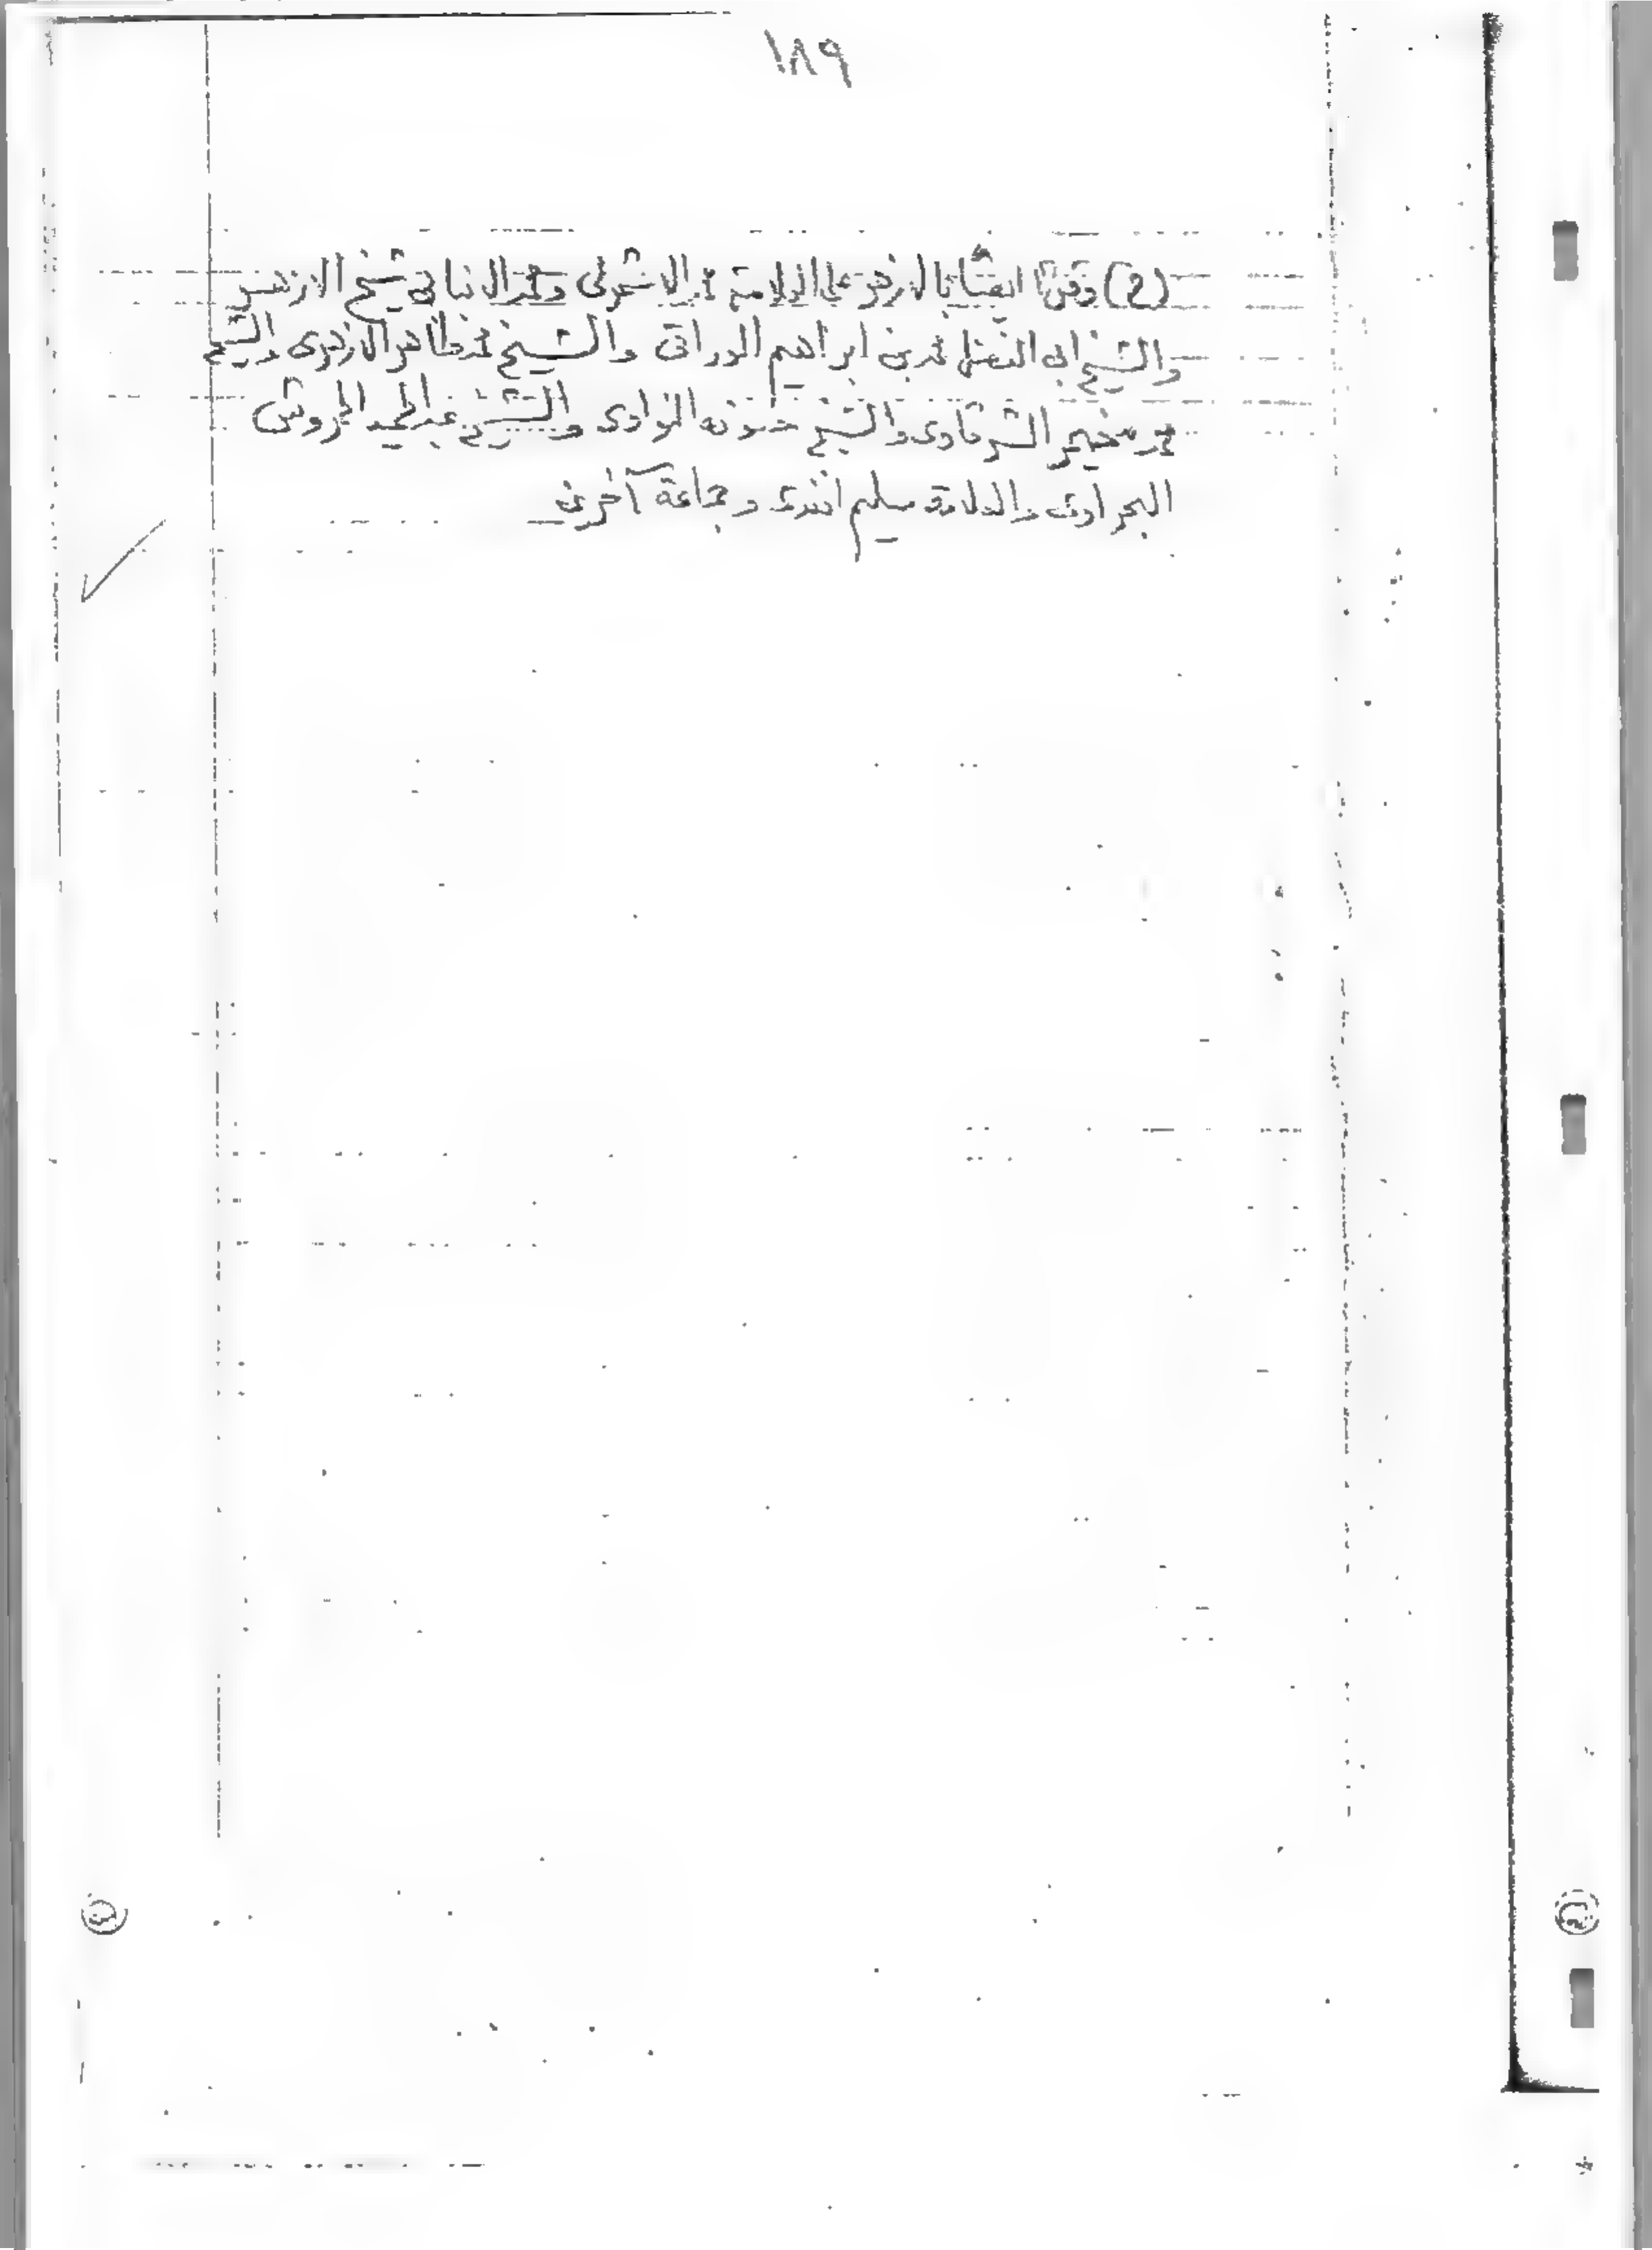 ١٨٩
(2) وقرأ ايضًا بالازهر على العلامة محمد الاشمونى ومحمد الانبابى شيخ الازهر
والشيخ ابى الفضل محمد بن ابراهيم الوراقى والشيخ محمد طاهر الازهرى والشيخ
محمد الشرقاوى والشيخ حسونه النواوى والشيخ عبد الحميد
البحراوى والعلامة سليم افندى وجماعة آخرين